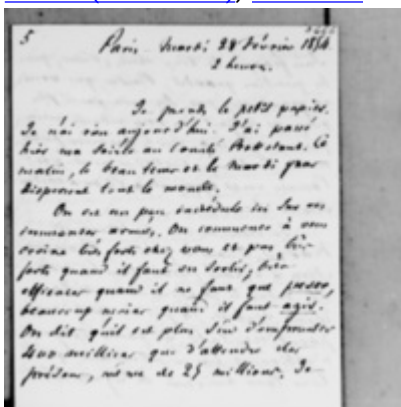 5
Paris - Mardi 28 Février 1854
2 heures.
Je prends le petit papier.
Je n'ai rien aujourd'hui. J'ai passé
hier ma soirée au Comité Protestant. Ce
matin, le beau tems et le Mardi gras
dispersent tout le monde.
On est un peu incrédule ici sur vos
immenses armées. On commence à vous
croire très forts chez vous et pas très
forts quand il faut en sortir, très
efficaces quand il ne faut que peser,
beaucoup moins quand il faut agir.
On dit qu'il est plus sûr d'emprunter
400 millions que d'attendre des
présens, même de 25 millions. Je